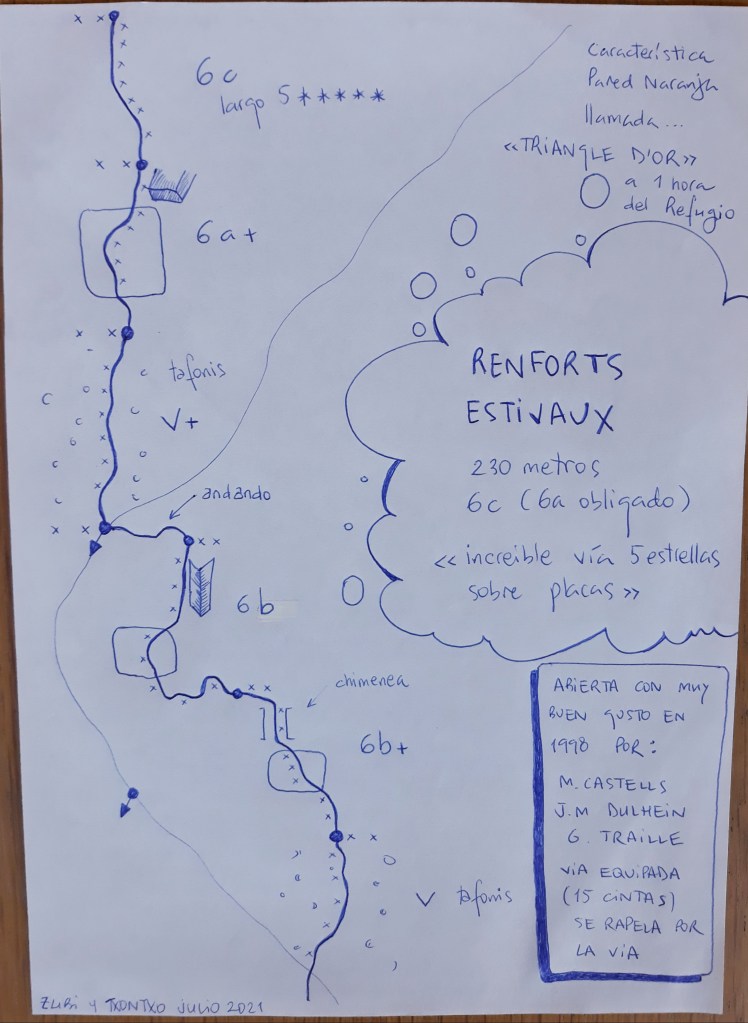 Característica
Pared Naranja
llamada...
«TRIANGLE D'OR»
a 1 hora
del Refugio
6c
largo 5 *****
6a+
tafonis
V+
andando
6b
chimenea
6b+
V tafonis
RENFORTS
ESTIVAUX
230 metros
6c (6a obligado)
«increible vía 5 estrellas
sobre placas»
ABIERTA CON MUY
BUEN GUSTO EN
1998 POR:
M. CASTELLS
J.M DULHEIN
G. TRAILLE
VIA EQUIPADA
(15 CINTAS)
SE RAPELA POR
LA VÍA
ZUBI Y TXONTXO JULIO 2021